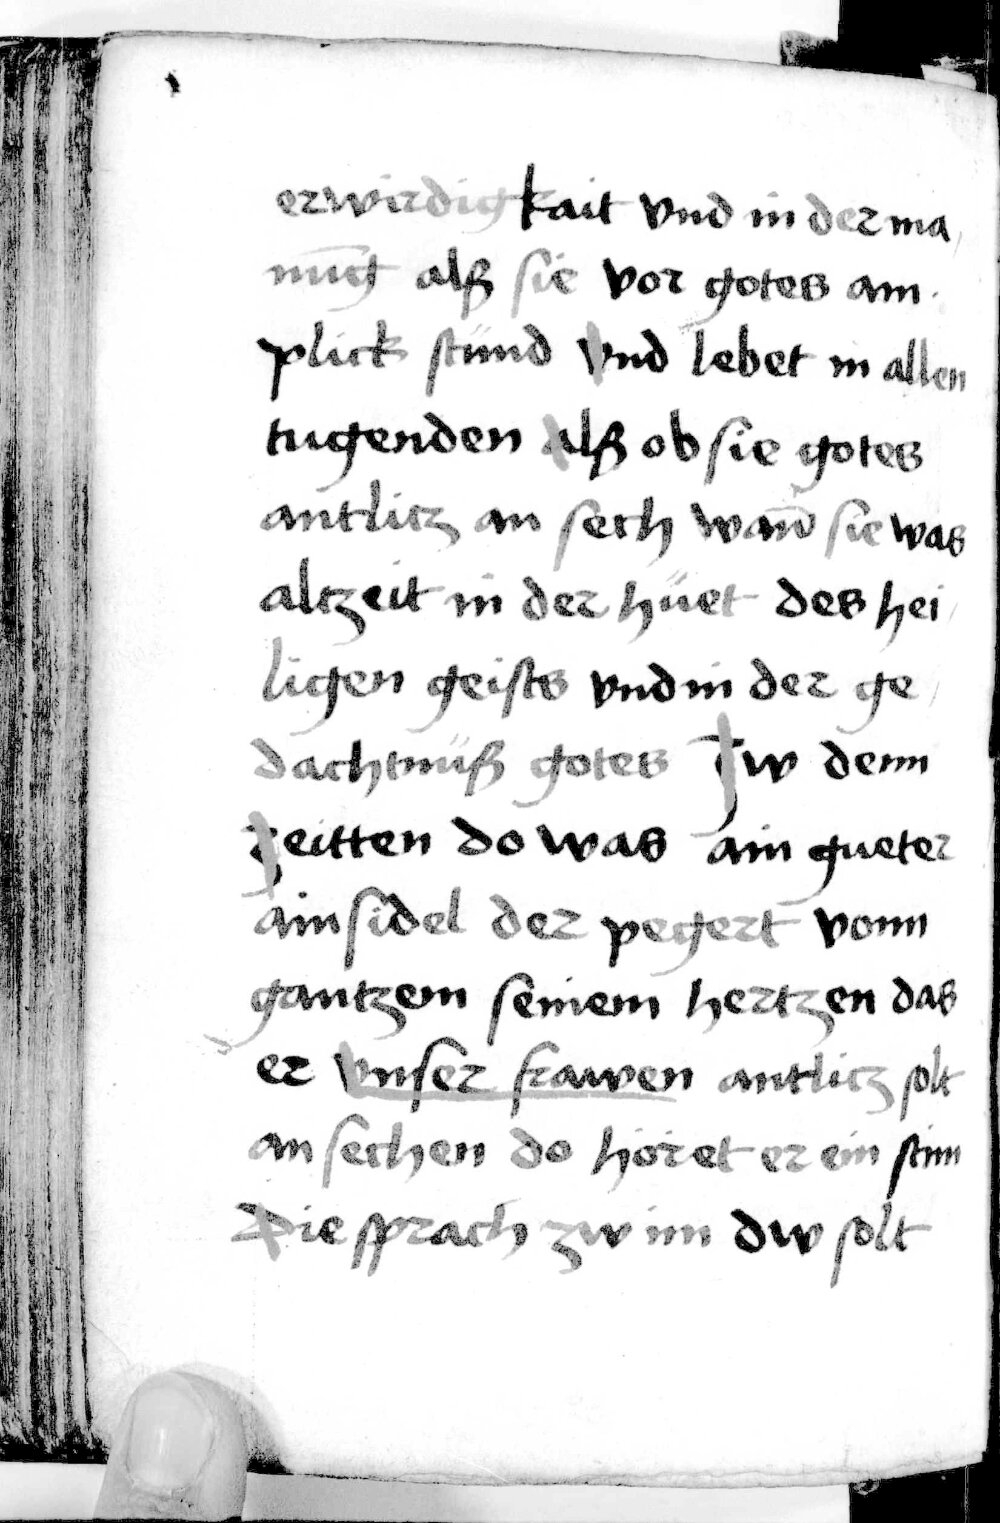 erwirdigkait vnd in der ma
nūg alß sie vor gotes am
plick stünd vnd lebet in allen
tugenden alß ob sie gotes
antlitz an sech wan̄ sie was
altzeit in der hüet des hei
ligen geists vnd in der ge
dachtnüß gotes Zw denn
zeitten do was ain gueter
ainsidel der pegert vonn
gantzem seinem hertzen das
er vnser frawen antlitz solt
an sechen do höret er ein stim
Die sprach zw im dw solt